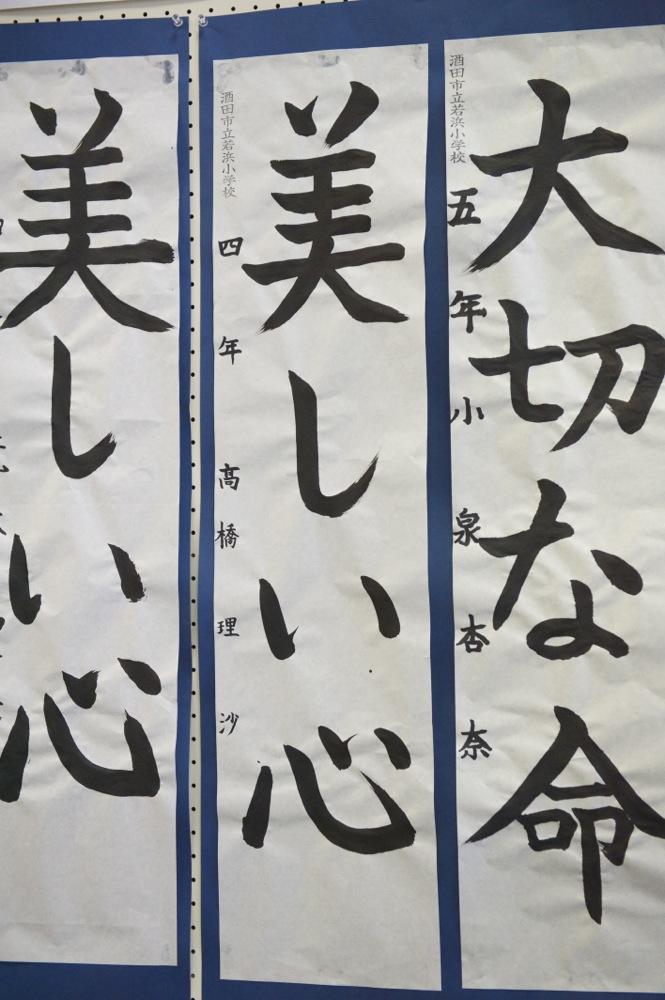 大切な命
酒田市立若浜小学校
五年 小泉杏奈
美しい心
酒田市立若浜小学校
四年 髙橋理沙
美しい心